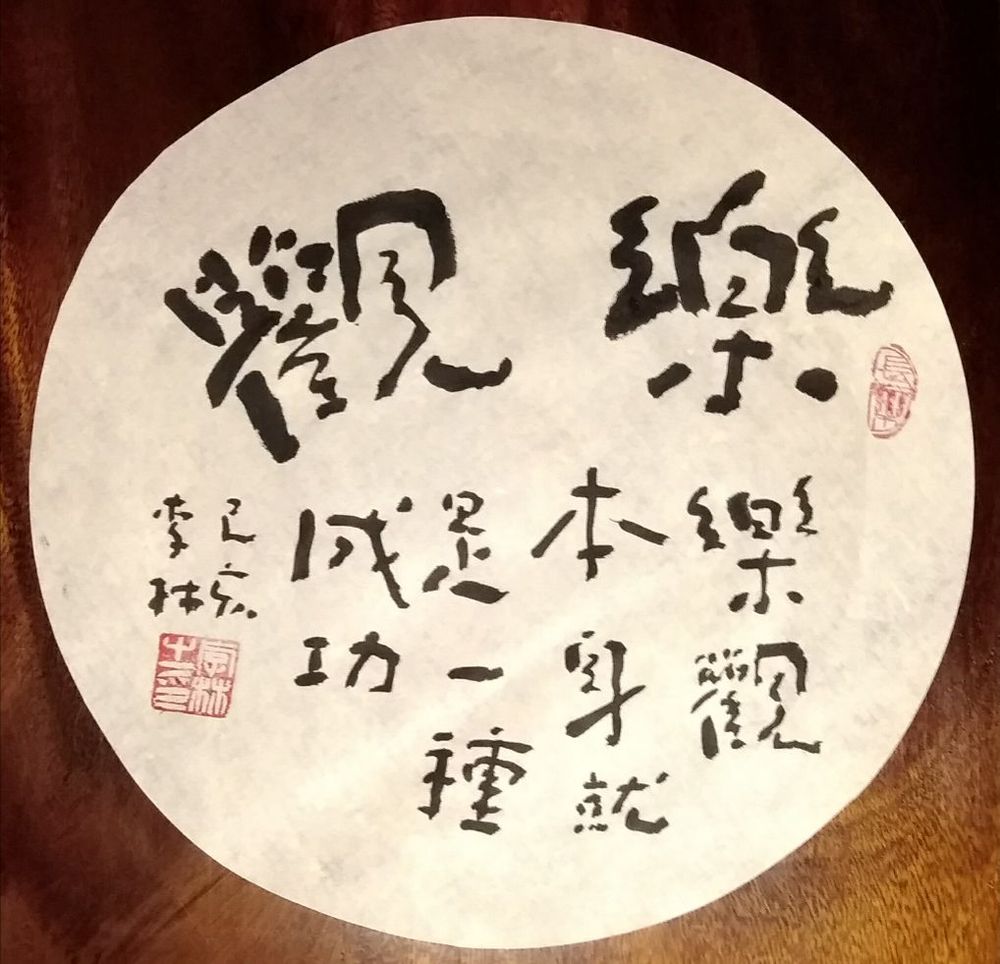 樂觀
樂觀
本身就
是一種
成功
己亥
李林